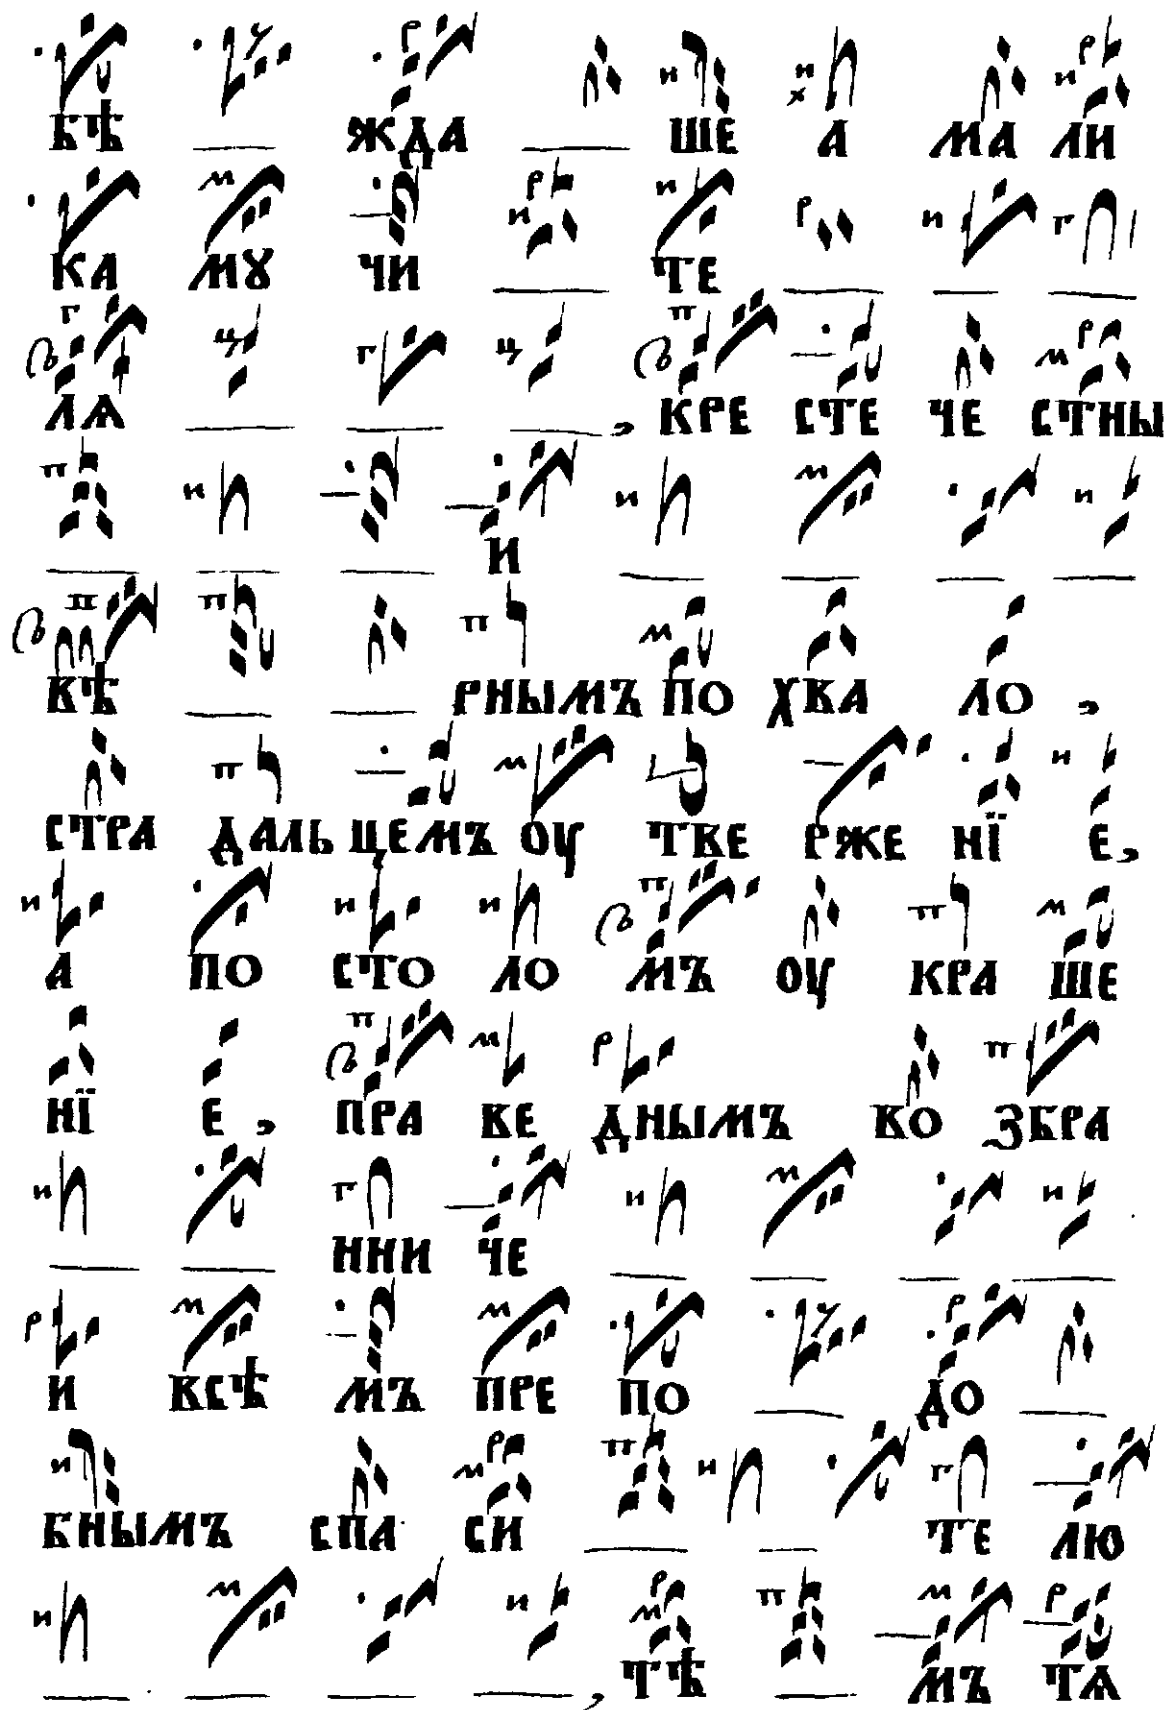 бѣ жда ше а ма ли
ка мꙋ чи те
лѧ , кре сте че стны
и
вѣ рнымъ по хва ло ,
стра дальцемъ оу тве рже нїе е,
а по сто ло мъ оу кра ше
нї е , пра ве днымъ во збра
нни че
и всѣ мъ пре по до
бнымъ спа си те лю
, тѣ мъ тѧ